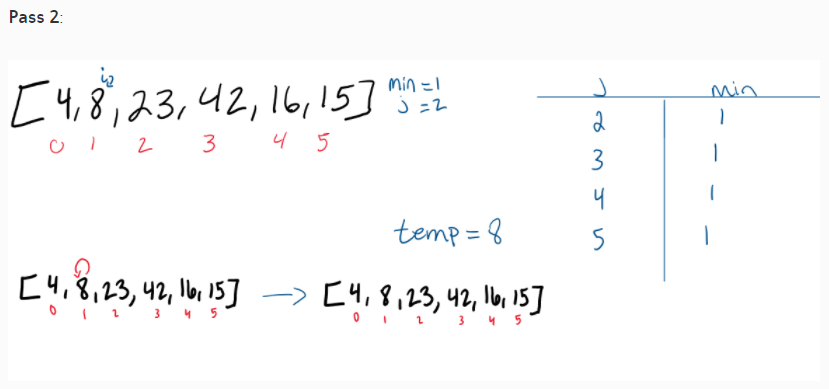 Pass 2:
i2
[4,8,23,42,16,15] min=1
j=2
0 1 2 3 4 5
j min
2 1
3 1
4 1
5 1
temp=8
[4,8,23,42,16,15] → [4,8,23,42,16,15]
0 1 2 3 4 5 0 1 2 3 4 5